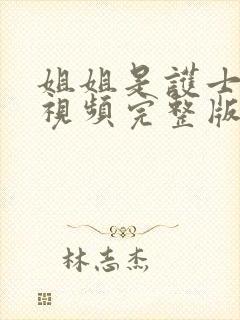 姐姐是護士
視頻完整版
林志杰